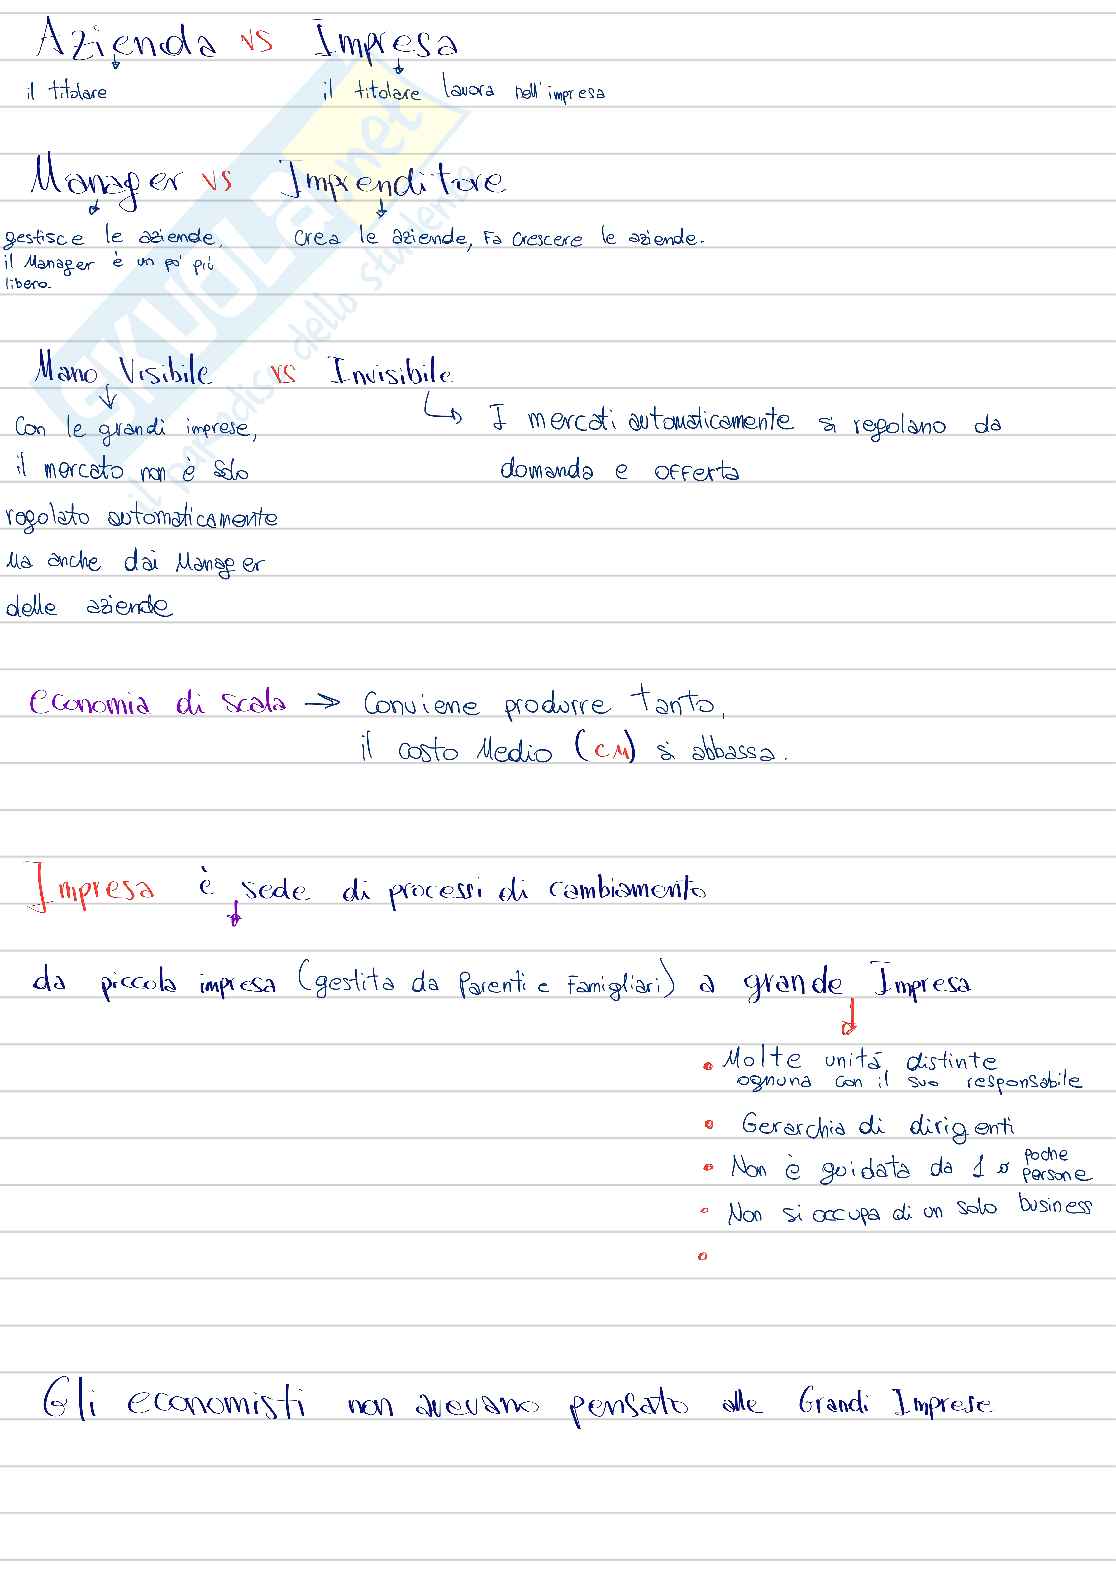 Azienda vs Impresa
il titolare
il titolare lavora nell'impresa
Manager vs Imprenditore
gestisce le aziende.
il Manager è un po' più
libero.
crea le aziende, fa crescere le aziende.
Mano Visibile vs Invisibile
Con le grandi imprese,
il mercato non è solo
regolato automaticamente
Ma anche dai Manager
delle aziende
I mercati automaticamente si regolano da
domanda e offerta
economia di scala → Conviene produrre tanto,
il costo Medio (CM) si abbassa.
Impresa è sede di processi di cambiamento
da piccola impresa (gestita da Parenti e Famigliari) a grande Impresa
• Molte unità distinte
ognuna con il suo responsabile
• Gerarchia di dirigenti
• Non è guidata da 1 o poche
persone
• Non si occupa di un solo business
•
Gli economisti non avevano pensato alle Grandi Imprese
SKUOLA.net
il paradiso dello studente